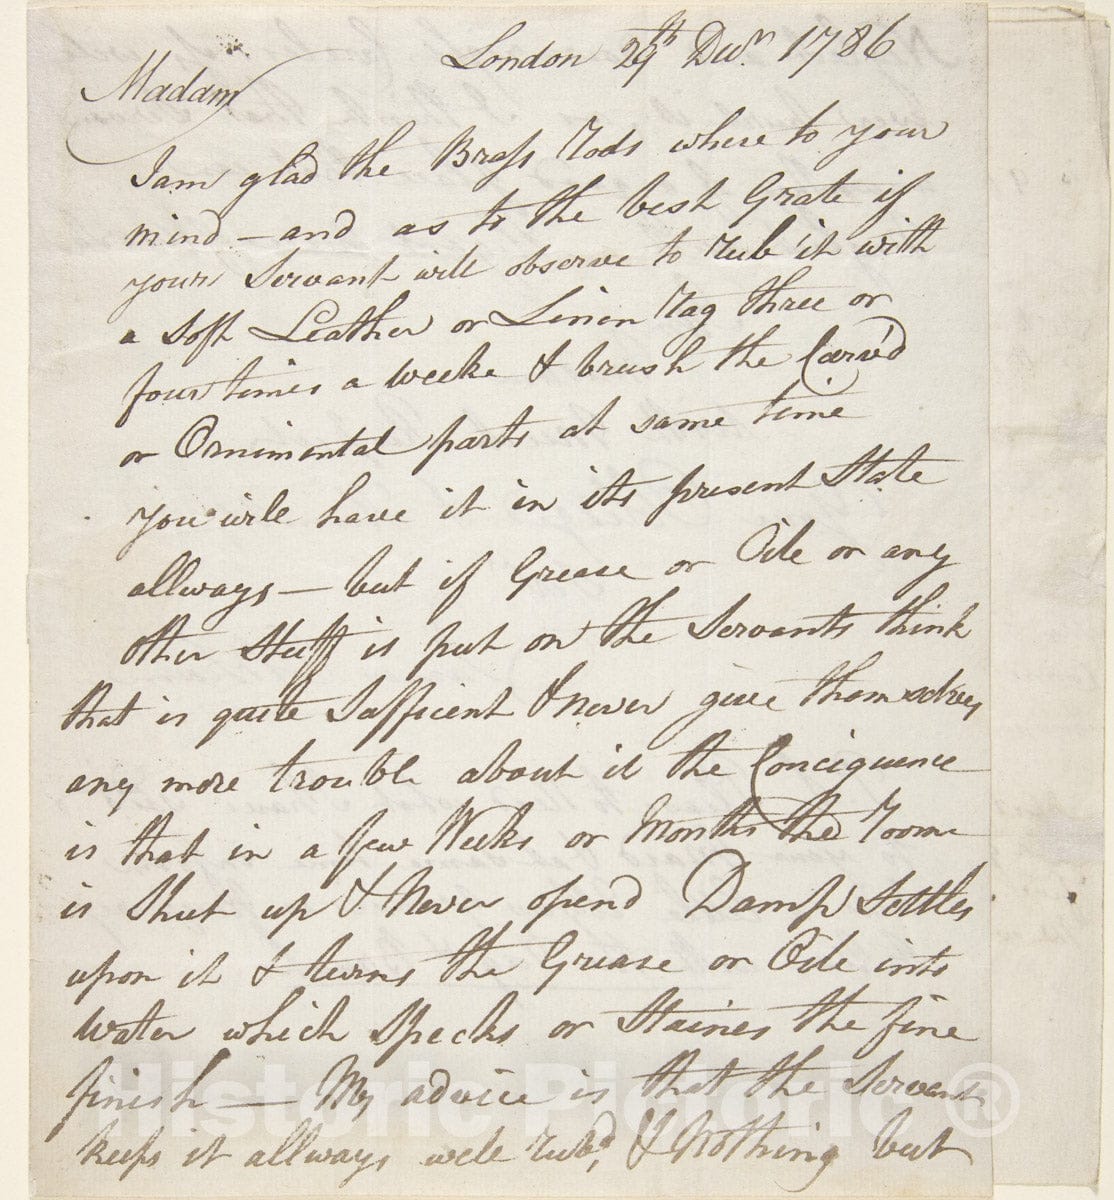 London 29th Decr. 1786
Madam
I am glad the Brass Rods where to your
mind — and as to the best Grate if
yours Servant will observe to rub it with
a soft Leather or Linnin Rag three or
four times a weeke & brush the Carv'd
or Ornimental parts at same time
you will have it in its present State
allways — but if Grease or Oile or any
other Stuff is put on the Servants think
that is quite Sufficient & never give themselves
any more trouble about it the Conciquence
is that in a few Weeks or Months the Room
is Shut up & Never opend Damp Settles
upon it & turns the Grease or Oile into
Water which Specks or Staines the fine
finish — My advice is that the Servant
keeps it allways well rub'd, & Nothing but
Historic Pictoric®